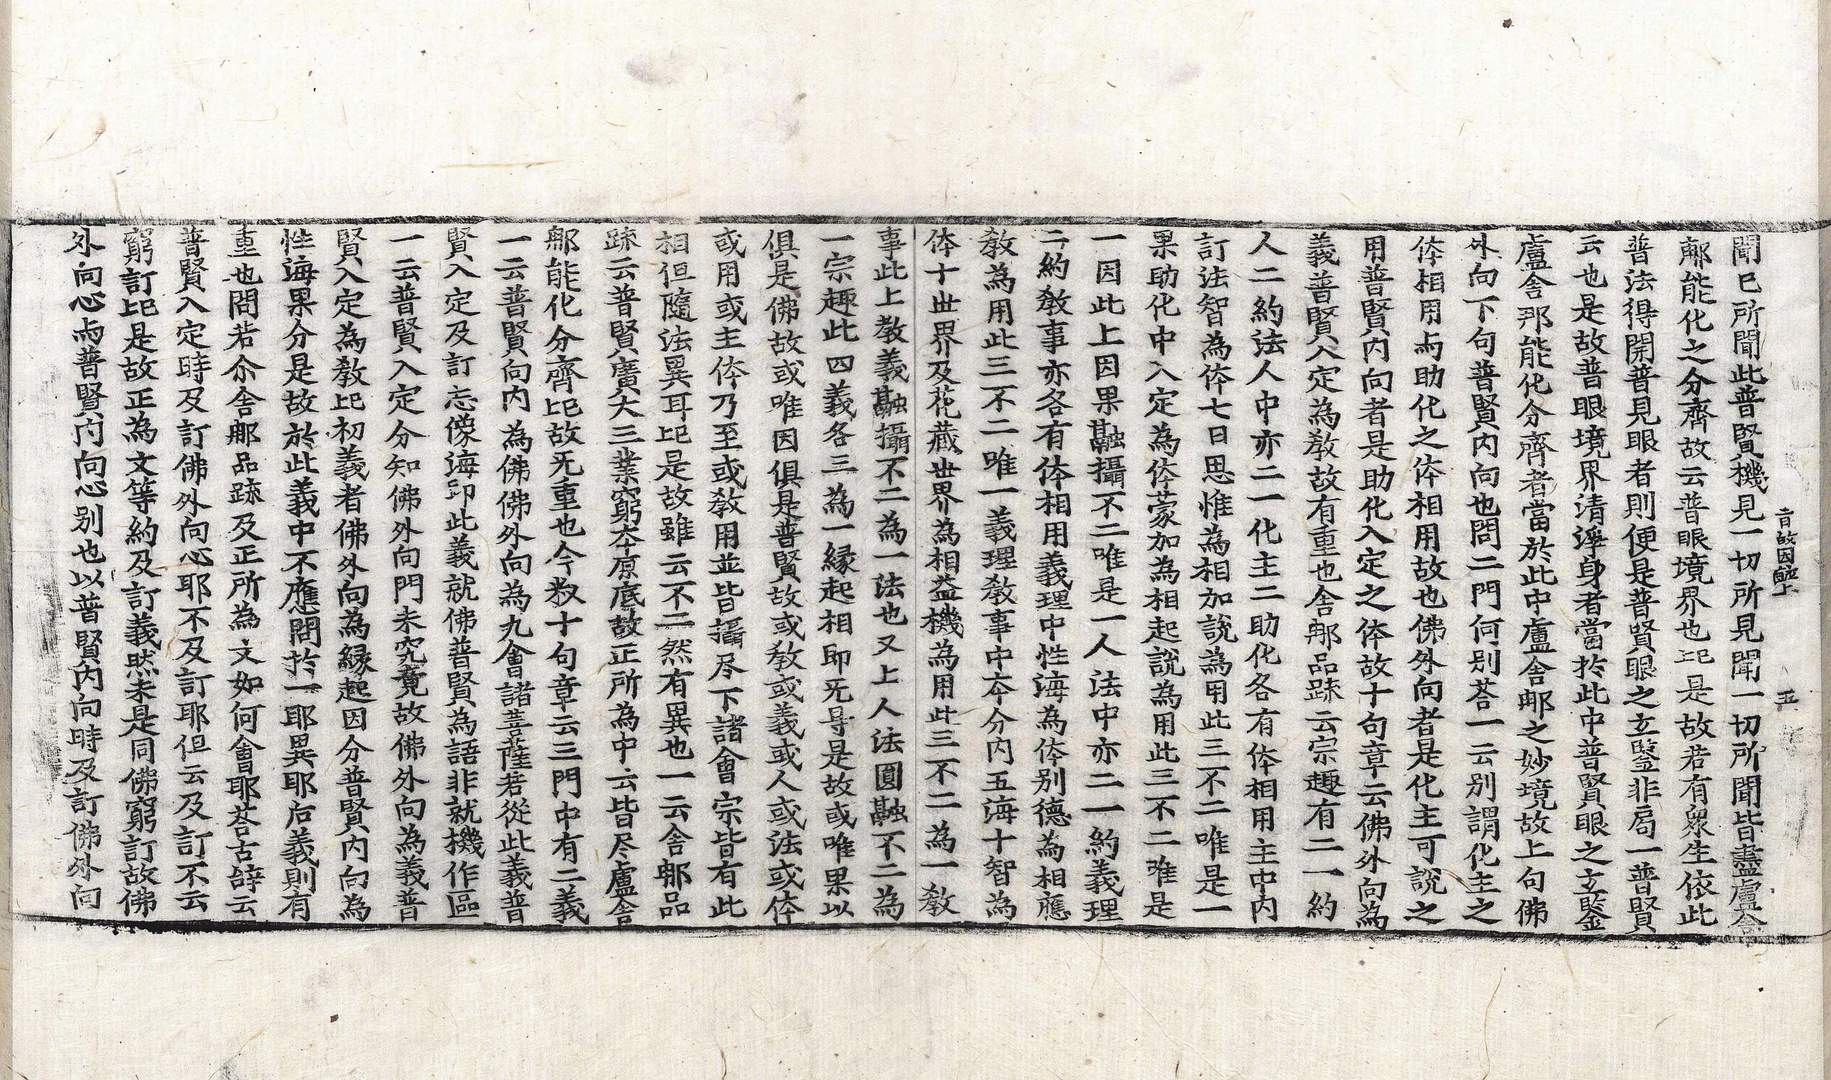 聞已所聞此普賢機見一切所見聞一切所聞皆盡盧舍
郍能化之分齊故云普眼境界也此是故若有衆生依此
普法得開普見眼者則便是普賢眼之玄鑒非局一普賢
云也是故普眼境界清淨身者當於此中普賢眼之玄鑒
盧舍那能化分齊者當於此中盧舍郍之妙境故上句佛
外向下句普賢內向也問二門何別荅一云別謂化主之
体相用与助化之体相用故也佛外向者是化主可說之
用普賢內向者是助化入定之体故十句章云佛外向為
義普賢入定為敎故有重也舍郍品䟽云宗趣有二一約
人二約法人中亦二一化主二助化各有体相用主中內
訂法智為体七日思惟為相加說為用此三不二唯是一
果助化中入定為体蒙加為相起說為用此三不二唯是
一因此上因果融攝不二唯是一人法中亦二一約義理
二約敎事亦各有体相用義理中性海為体別德為相應
敎為用此三不二唯一義理敎事中夲分內五海十智為
体十世界及花藏世界為相益機為用此三不二為一敎
事此上敎義融攝不二為一法也又上人法圓融不二為
一宗趣此四義各三為一緣起相即无导是故或唯果以
俱是佛故或唯因俱是普賢故或敎或義或人或法或体
或用或主体乃至或敎用並皆攝尽下諸會宗皆有此
相但隨法異耳此是故雖云不二然有異也一云舍郍品
䟽云普賢廣大三業窮夲原底故正所為中云皆尽盧舍
郍能化分齊此故无重也今敎十句章云三門中有二義
一云普賢向內為佛佛外向為九會諸菩薩若從此義普
賢入定及訂忘像海印此義就佛普賢為語非就機作區
一云普賢入定分知佛外向門未究竟故佛外向為義普
賢入定為敎此初義者佛外向為緣起因分普賢內向為
性海果分是故於此義中不應問扵一耶異耶后義則有
重也問若尒舍郍品䟽及正所為文如何會耶荅古辝云
普賢入定時及訂佛外向心耶不及訂耶但云及訂不云
窮訂此是故正為文等約及訂義然未是同佛窮訂故佛
外向心而普賢內向心別也以普賢內向時及訂佛外向
五